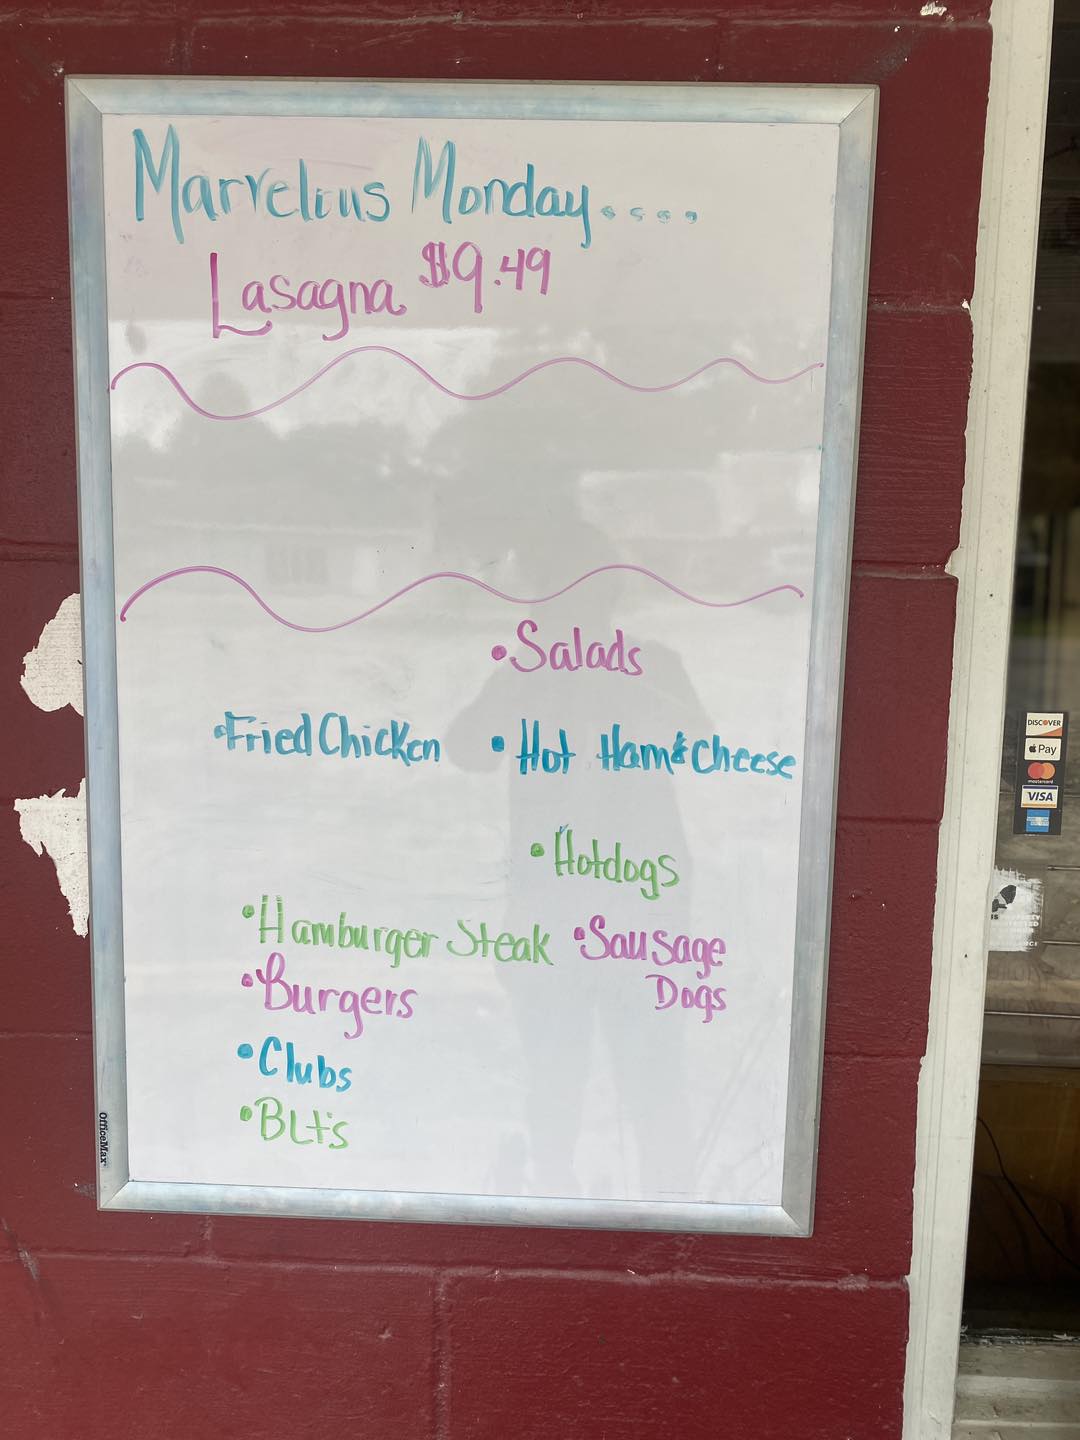 Marvelous Monday....,
Lasagna $9.49
•Salads
•Fried Chicken
•Hot Ham&Cheese
•Hotdogs
•Hamburger Steak
•Sausage
Dogs
•Burgers
•Clubs
•BLt's
OfficeMax
DISCOVER
Pay
mastercard
VISA